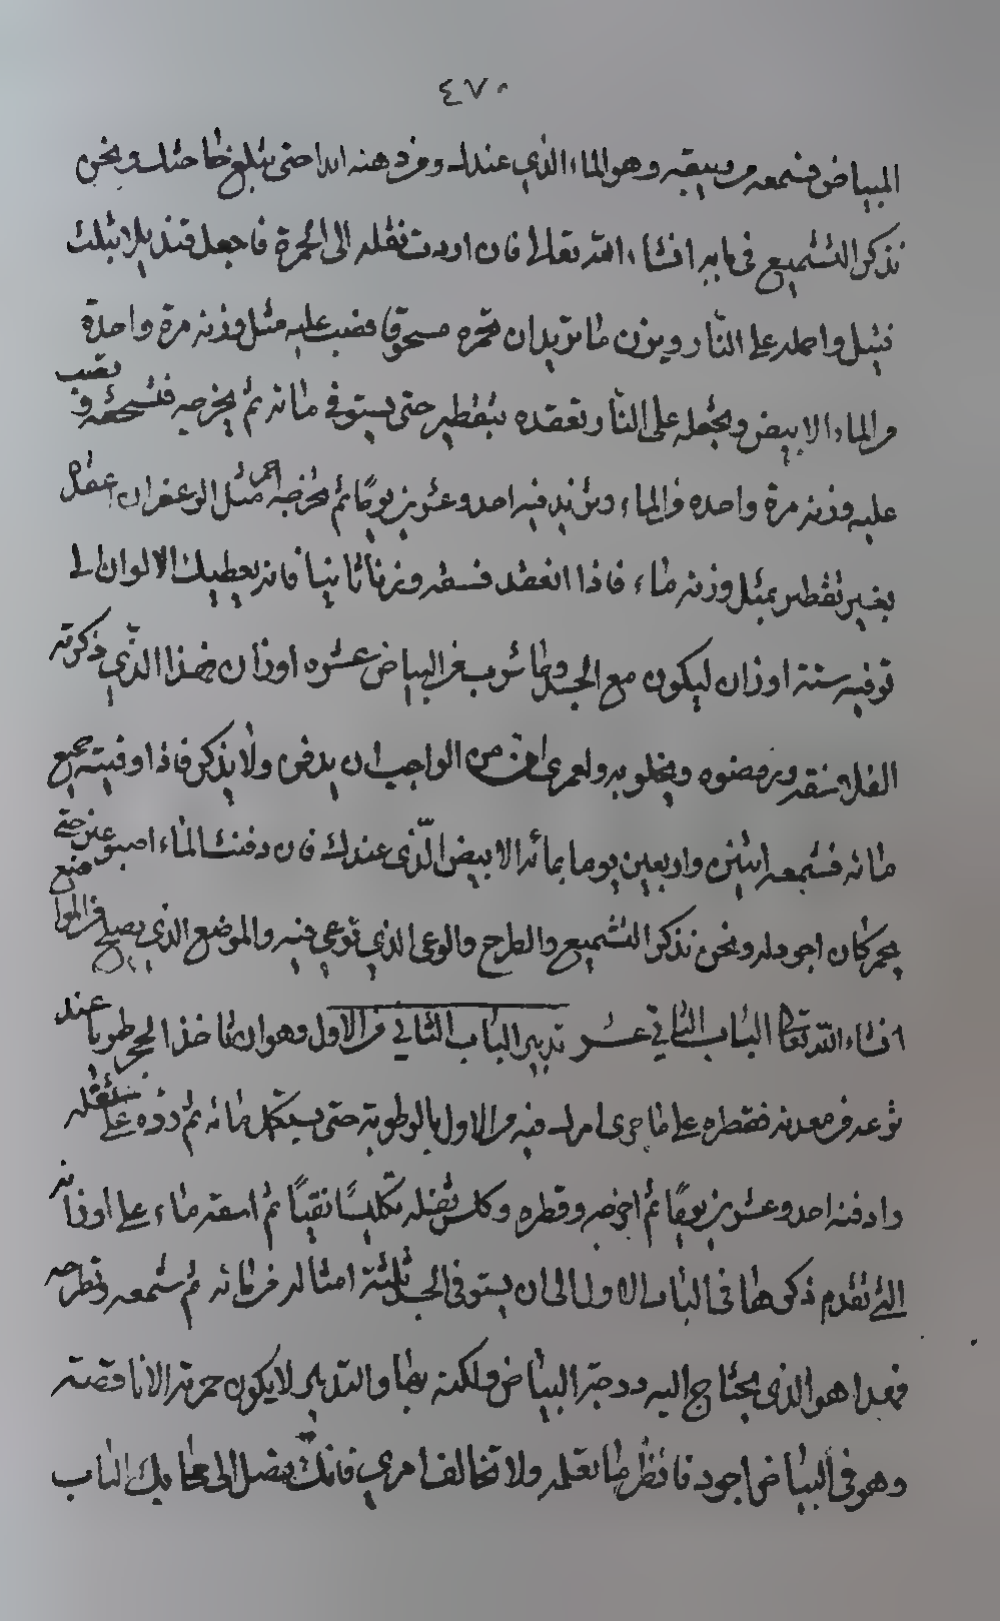 ٤٧٠
البياض فتشمعه وسقيه وهو الماء الذي عندك ومن دهنه ابدا حتى تبلغ حاجتك ونحن
نذكر التشميع في بابه انشاء الله تعالى فان اردت نقله الى الحمرة فاجعل قنديلا بثلث
فتيل واحمله على النار ويزن ما تريد ان تحمره مسحوقا فصب عليه مثل وزنه مرة واحدة
من الماء الابيض وتجعله على النار وتعقده بتقطير حتى يستوفي مائه ثم يخرجه فتسحقه وتصب
عليه وزنه مرة واحده من الماء وتؤيد فيه احد وعشرين يومًا ثم تخرجه احمر مثل الزعفران اعقده
بغير تقطير بمثل وزنه ماء فاذا انعقد فسقه وزنا ثانيا فانه يعطيك الالوان الى
توفيه ستة اوزان ليكون مع الجسد وما شرب في البياض عشره اوزان فهذا الذي ذكرته
الفلاسفه ورمضوه وبخلو به ولعمري انه من الواجب ان يدفن ولا يذكر فاذا وفيته جميع
مائه فشمعه اثنين واربعين يوما بمائه الابيض الذي عندك فان دفنت الماء اصبو عنه حتى
يحمر كان اجود له ونحن نذكر التشميع والطرح والوعى الذي توعي فيه والموضع الذي يصلح من الهوا
انشاء الله تعالى الباب الثاني عشر تدبير الباب الثاني من الاول وهو ان تاخذ الحجر طريا عند
نزعه من معدنه فقطره على ما جرى امرك فيه من الاول بالرطوبة حتى يستكمل مائه ثم رده على ثفله
وادفنه احد وعشرين يومًا ثم اخرجه وقطره وكلس ثفله تكليسًا نقيًا ثم اسقه ماء على اوزانه
التي تقدم ذكرها في الباب الاول الى ان يستوفى الجسد ثلثة امثاله من مائه ثم شمعه وتطرحه
فهذا هو الذي يحتاج اليه درجة البياض ولكنه بهذا التدبير لا يكون حمرته الا ناقصة
وهو في البياض اجود فانظر ما تعلمه ولا تخالف امري فانك تصل الى محابك الباب